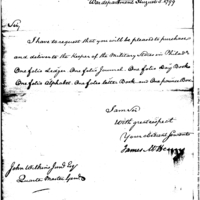 War department August 5 1799
Sir,
I have to request that you will be pleased to purchase
and deliver to the Keeper of the Military Stores in Philada
One folio Ledger One folio Journal One folio Day Book
One folio Alphabet One folio Letter Book and One
I am Sir
With great respect
Your Obedient Servant
James McHenry
John Wilkins Jund Esq
Quarter Master Genl